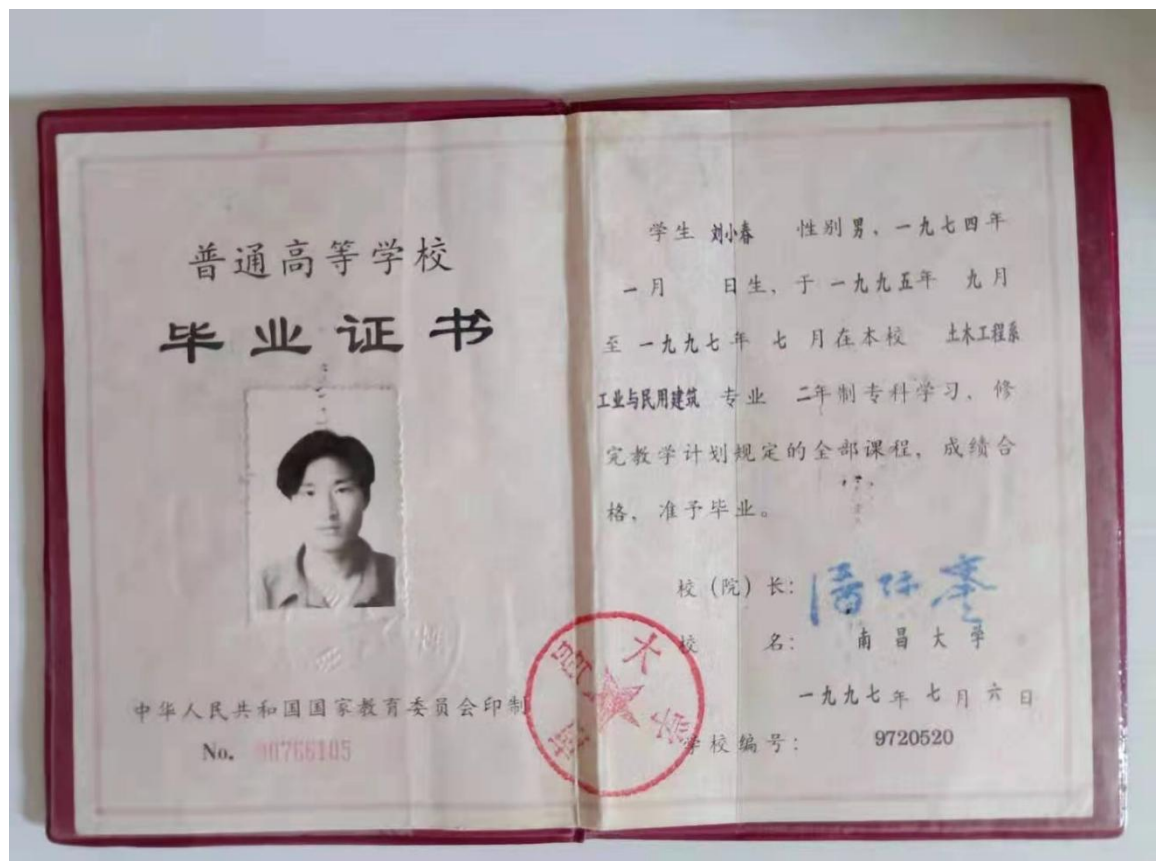 普通高等学校
毕业证书
中华人民共和国国家教育委员会印制
No. 90766105
学生 刘小春 性别 男、一九七四年
一月 日生、于 一九九五年 九月
至 一九九七年 七月在本校 土木工程系
工业与民用建筑 专业 二年制专科学习、修
完教学计划规定的全部课程，成绩合
格，准予毕业。
校（院）长：潘际銮
校 名：南昌大学
一九九七年七月六日
学校编号：9720520
南昌大学